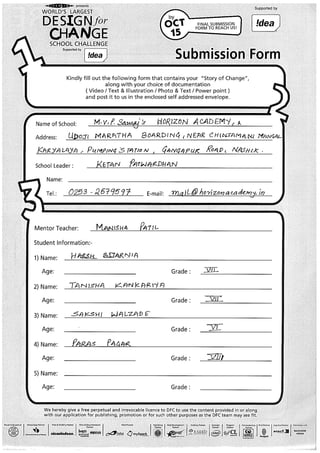 presents
WORLD'S LARGEST
DESIGN for
CHANGE
SCHOOL CHALLENGE
Supported by
!dea
OCT
15
FINAL SUBMISSION
FORM TO REACH US!
Supported by
!dea
Submission Form
Kindly fill out the following form that contains your "Story of Change",
along with your choice of documentation
( Video / Text & Illustration / Photo & Text / Power point )
and post it to us in the enclosed self addressed envelope.
Name of School: M.V.P. Samaj's HORIZON ACADEMY,
Address: UDOJI MARATHA BOARDING, NEAR CHINTAMANI MANGAL
KARYALAYA, PUMPING STATION, GANGAPUR ROAD, NASHIK.
School Leader : KETAN PATWARDHAN
Name:
Tel.: 0253-2579597 E-mail: mail@horizonacademy.in
Mentor Teacher: MANISHA PATIL
Student Information:-
1) Name: HARSH BIJARNIA
Age: Grade : VII
2) Name: TANISHA KANKARIYA
Age: Grade : VII
3) Name: SAKSHI WALZADE
Age: Grade : VI
4) Name: PARAS PAGAR
Age: Grade : VII
5) Name:
Age: Grade :
We hereby give a free perpetual and irrevocable licence to DFC to use the content provided in or along
with our application for publishing, promotion or for such other purposes as the DFC team may see fit.
nickelodeon